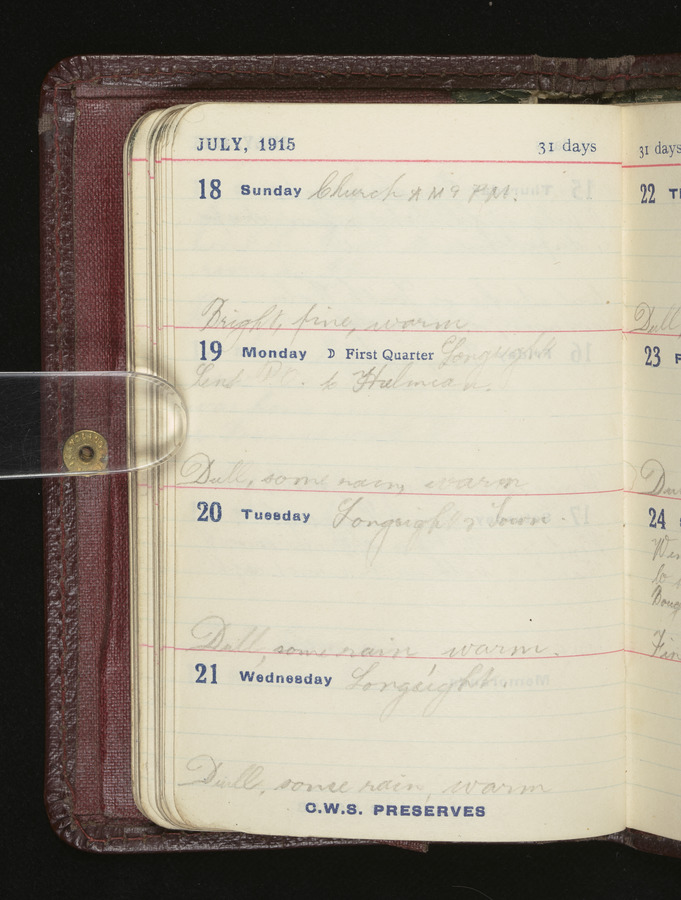 JULY, 1915 31 days
18 Sunday Church AM & PM.
Bright, fine, warm
19 Monday D First Quarter Longsight
Sent P.C. to Hulmian.
Dull, some rain, warm
20 Tuesday Longsight & Town.
Dull, some rain warm.
21 Wednesday Longsight.
Dull, some rain, warm
C.W.S. PRESERVES
31 days
22
Dull
23
24
to
Fin